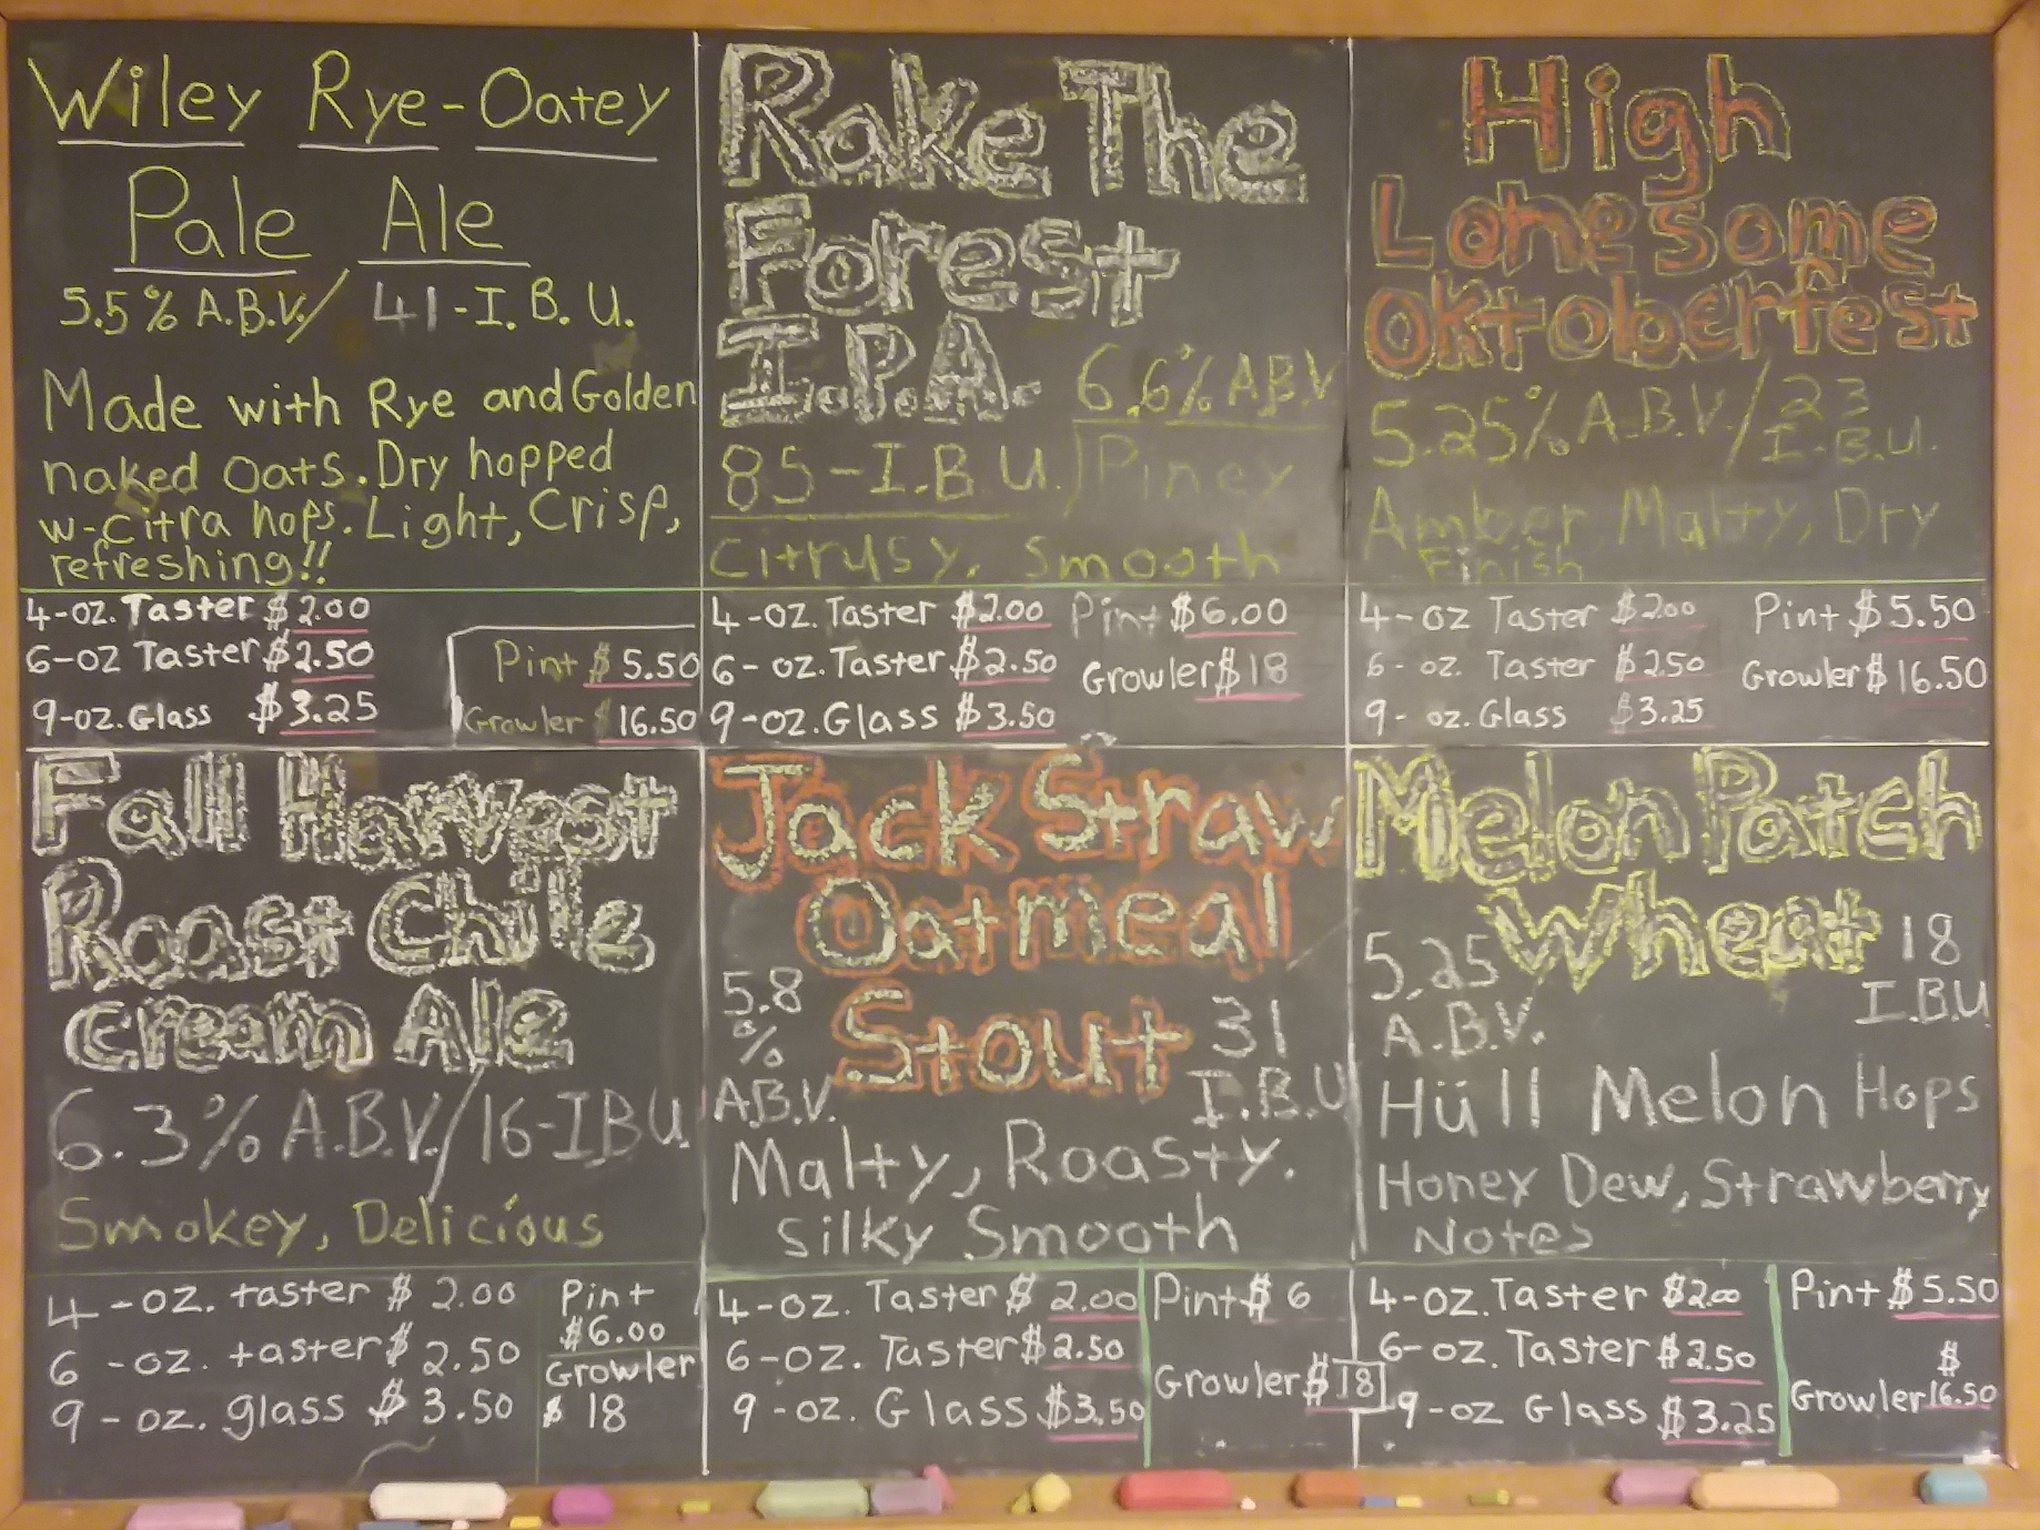 Wiley Rye-Oatey
Pale Ale
5.5% A.B.V./ 41-I.B.U.
Made with Rye and Golden
naked Oats. Dry hopped
w-Citra hops. Light, Crisp,
refreshing!!
4-oz. Taster $2.00
6-oz Taster $2.50
9-oz. Glass $3.25
Pint $5.50
Growler $16.50
Rake The
Forest
I.P.A.
6.6% A.B.V
85-I.B.U. Piney
Citrusy, Smooth
4-oz. Taster $2.00
6-oz. Taster $2.50
9-oz. Glass $3.50
Pint $6.00
Growler $18
High
Lonesome
Oktoberfest
5.25% A.B.V./23
I.B.U.
Amber Malty, Dry
Finish
4-oz Taster $2.00
6-oz. Taster $2.50
9-oz. Glass $3.25
Pint $5.50
Growler $16.50
Fall Harvest
Roast Chile
Cream Ale
6.3% A.B.V./16-IBU
Smokey, Delicious
4-oz. taster $2.00
6-oz. taster $2.50
9-oz. glass $3.50
Pint
$6.00
Growler
$18
Jack Straw
Oatmeal
Stout
5.8
%
A.B.V.
31
I.B.U
Malty, Roasty.
Silky Smooth
4-oz. Taster $2.00
6-oz. Taster $2.50
9-oz. Glass $3.50
Pint $6
Growler $18
Melon Patch
Wheat
5.25
A.B.V.
18
I.B.U
Hüll Melon Hops
Honey Dew, Strawberry
Notes
4-oz. Taster $2.00
6-oz. Taster $2.50
9-oz Glass $3.25
Pint $5.50
$
Growler 16.50